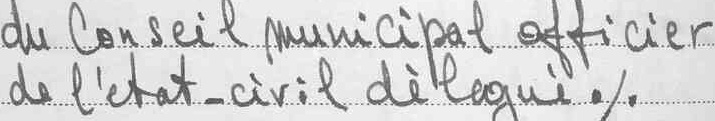 du Conseil municipal officier
de l'etat-civil dèlegué ./.